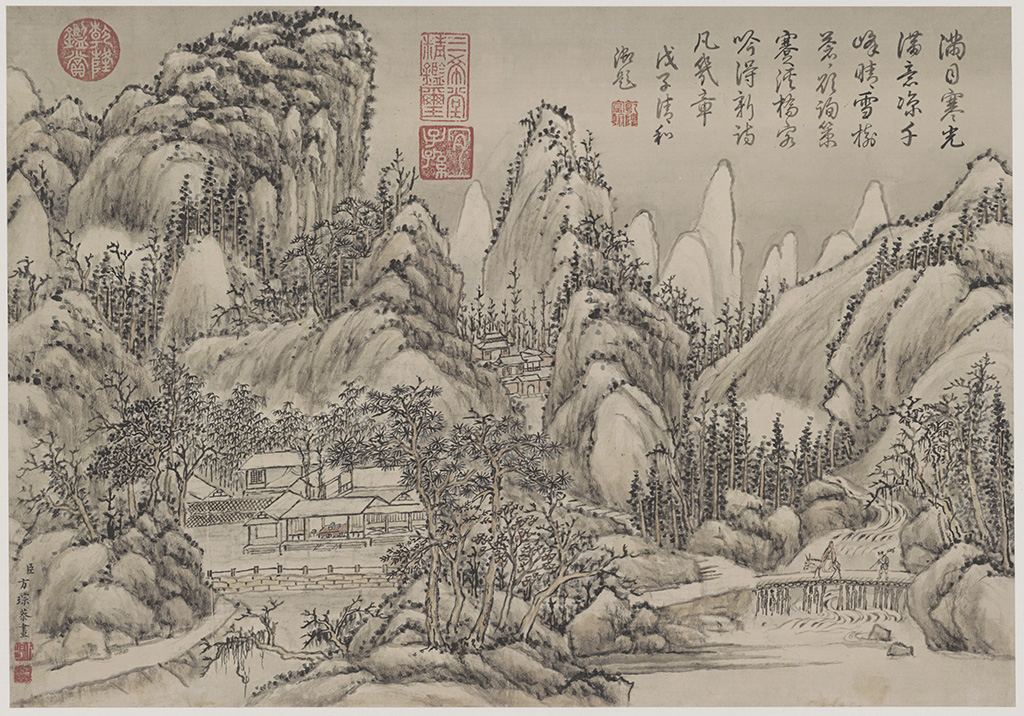 滿目寒光
滿意涼千
峰晴雪樹
蒼〻欲詢策
蹇溪橋客
吟得新詩
凡幾章
戊子清和
御題
三希堂精鑑璽
宜子孫
乾隆鑑賞
臣方琮恭畫